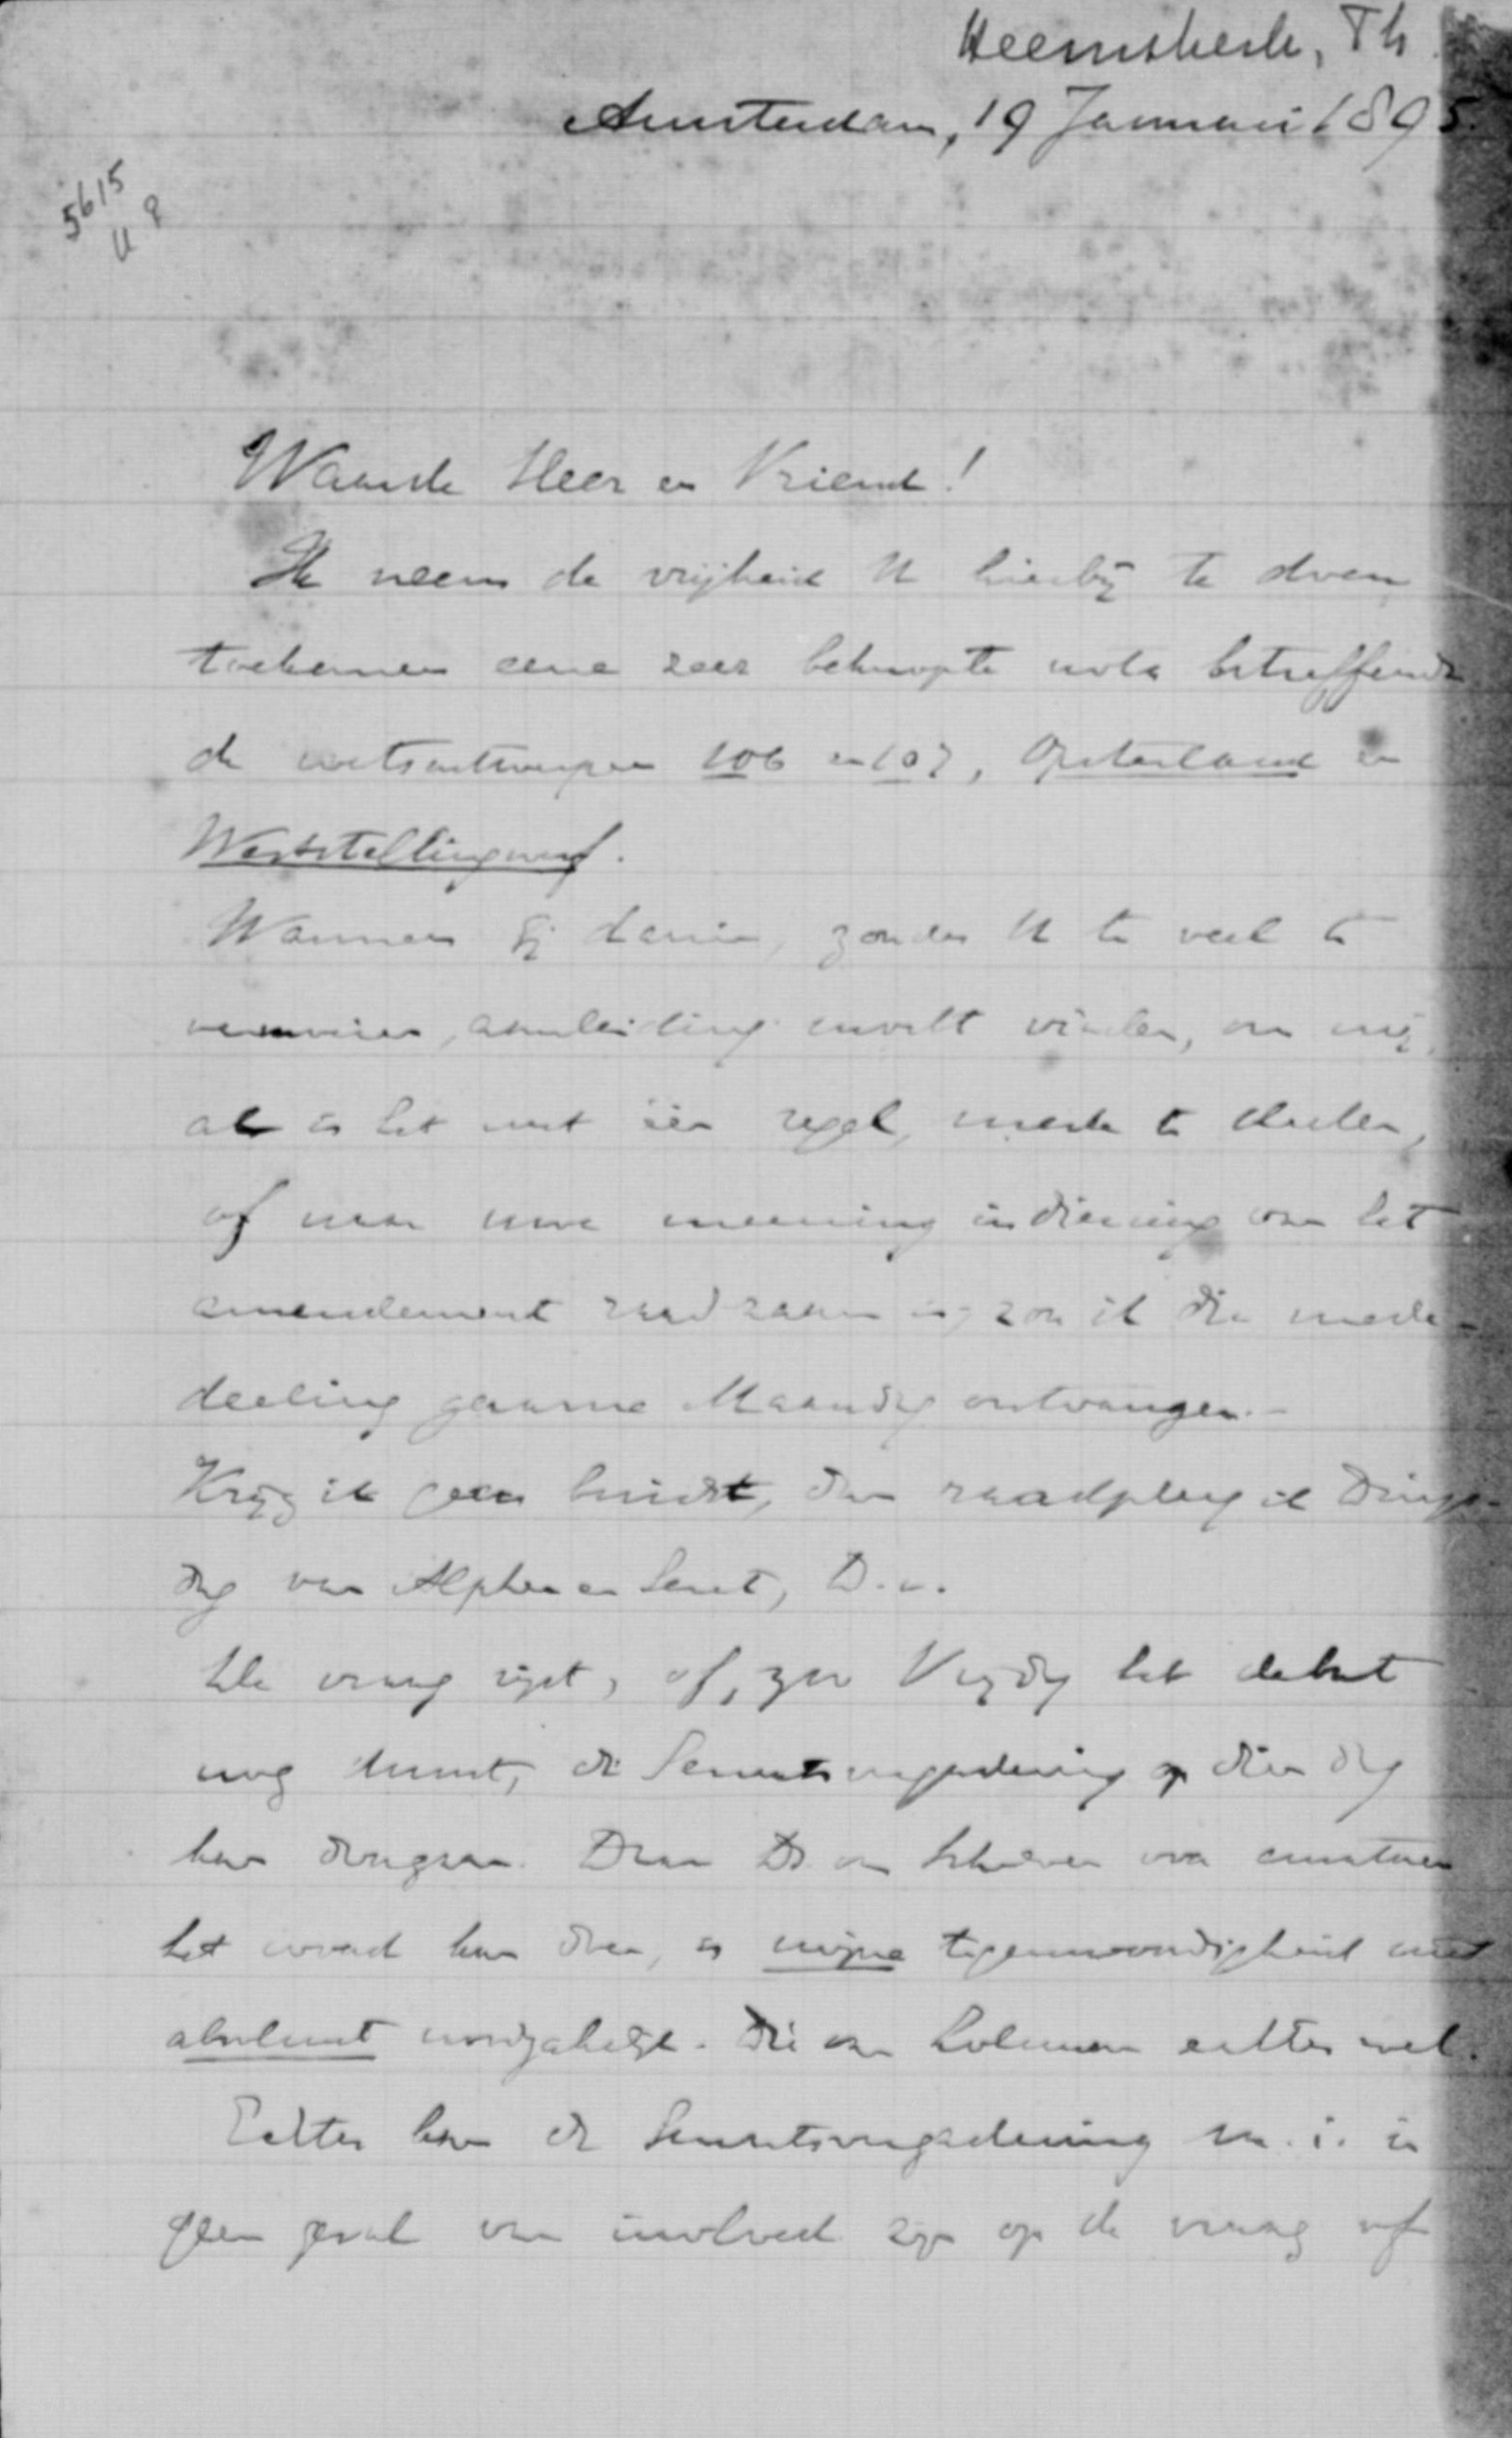 Heemskerk, Th.
Amsterdam, 19 Januari 1895.
5615
Waarde Heer en Vriend!
Ik neem de vrijheid U hierbij te doen
toekomen eene zeer beknopte nota betreffende
de wetsontwerpen 106 en 107, Opsterland en
Weststellingwerf.
Wanneer gij daarin, zonder U te veel te
vermoeien, aanleiding mocht vinden, om mij,
al is het met één regel, mede te deelen,
of naar uwe meening indiening van het
amendement raadzaam is, zou ik die mede-
deeling gaarne Maandag ontvangen.-
Krijg ik geen bericht, dan raadpleeg ik Dings-
dag van Alphen en Seret, D.v.
De vraag rijst, of, zoo Vrijdag het debat
nog duurt, de Senaatsvergadering op dien dag
kan doorgaan. Daar Ds. van Schelven voor curatoren
het woord kan doen, is mijne tegenwoordigheid niet
absoluut noodzakelijk. Die van Lohman echter wel.
Echter kan de Senaatsvergadering m.i. in
geen geval van invloed zijn op de vraag of